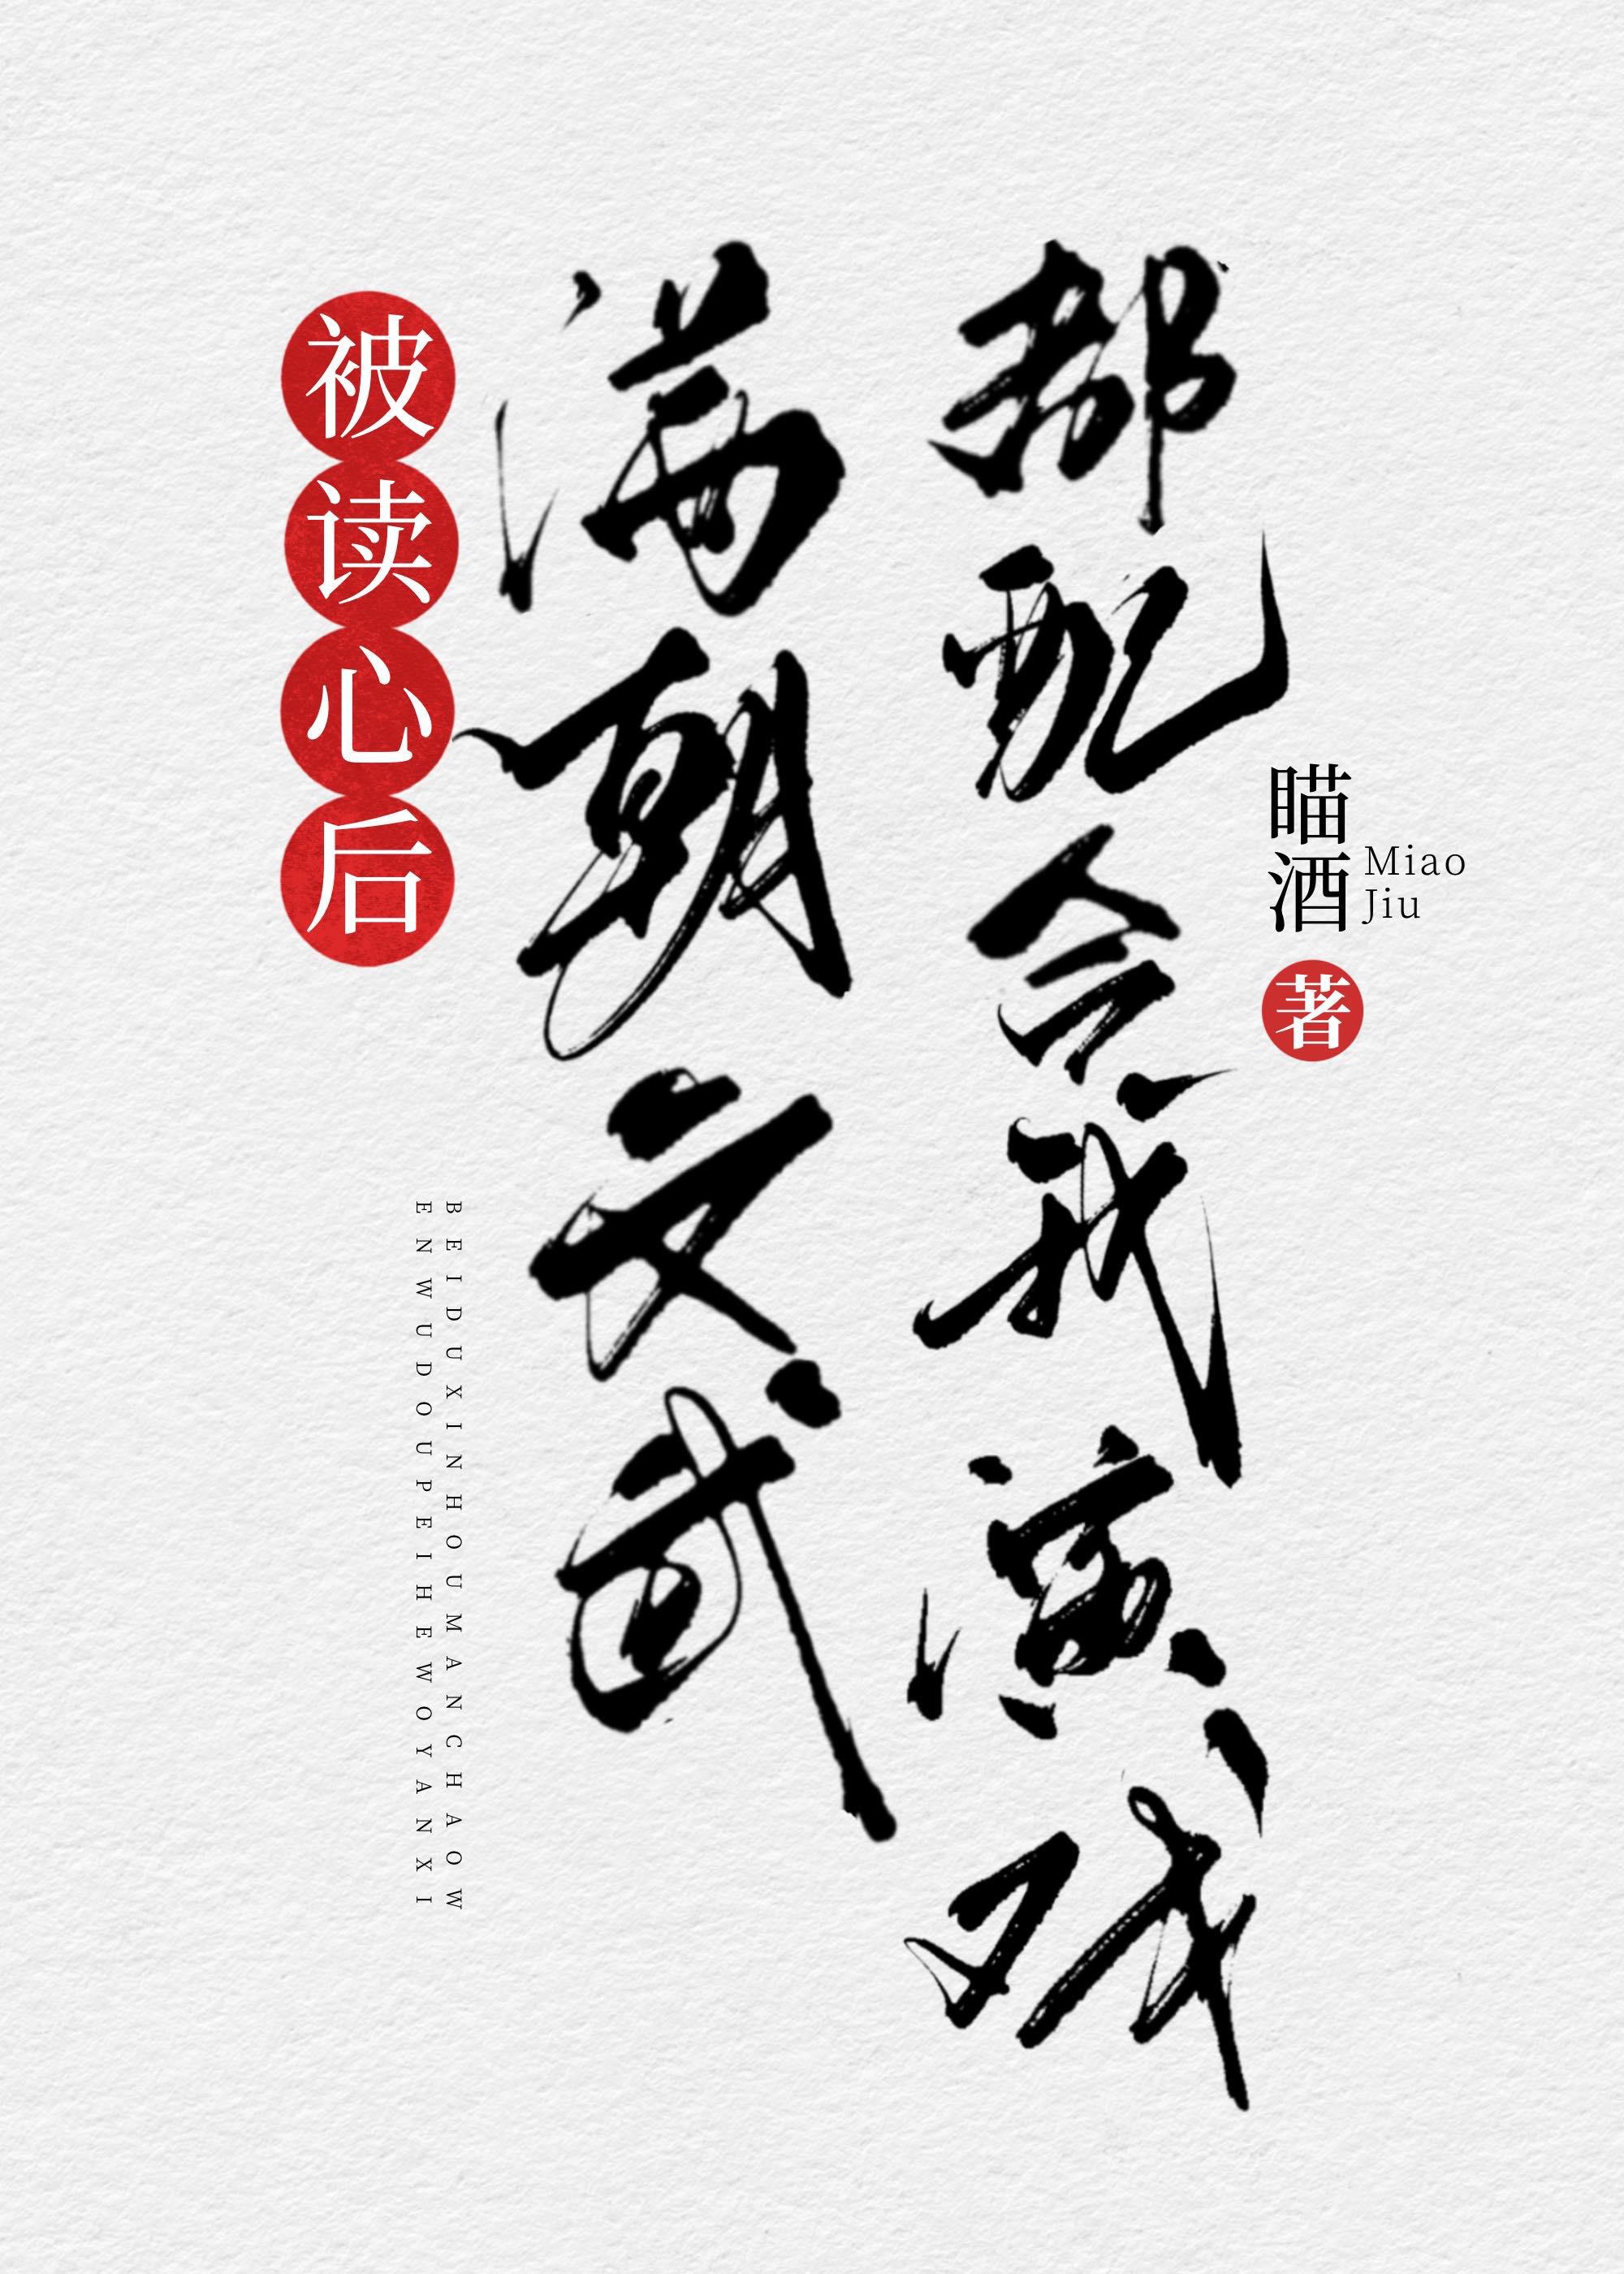 被读心后
满朝文武
都配合我演戏
瞄酒
Miao
Jiu
著
BEIDUXINHOUMANCHAOW
ENWUDOUPEIHEWOYANXI